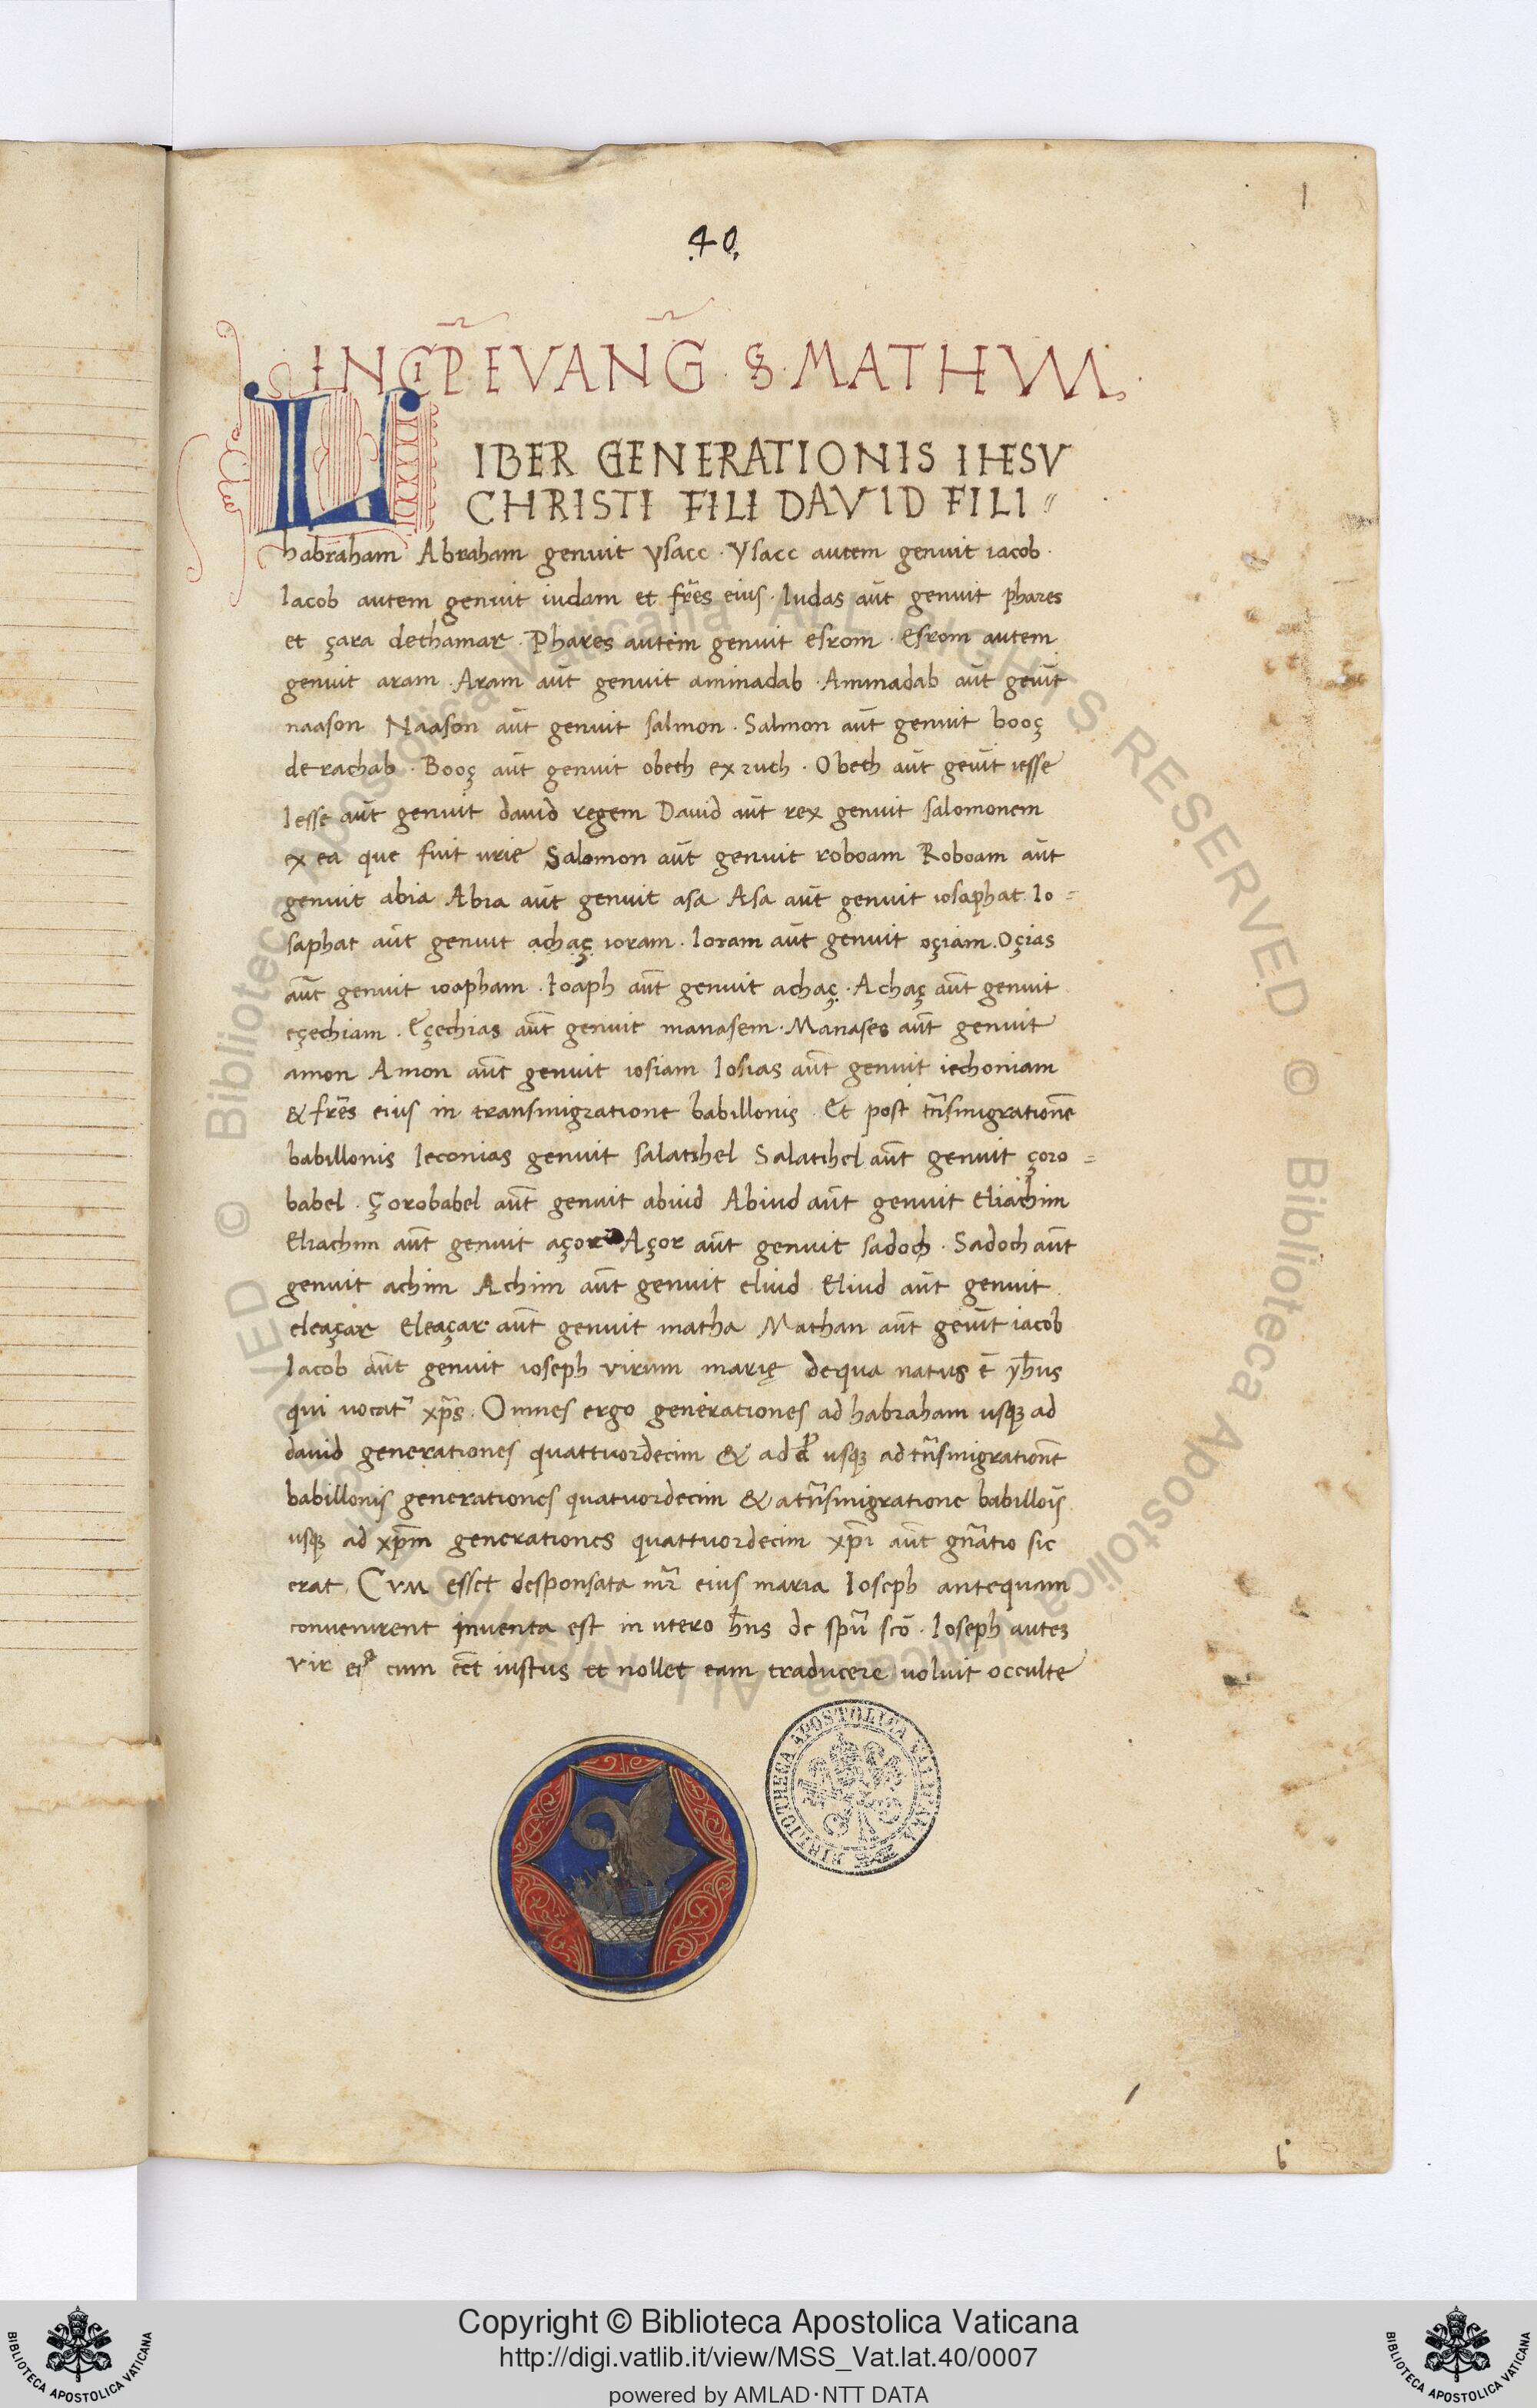 1
.40.
INCIP̄ EVANḠ. S. MATHVM.
LIBER GENERATIONIS IHESV
CHRISTI FILI DAVID FILI
habraham Abraham genuit ysacc. Ysacc autem genuit iacob.
Iacob autem genuit iudam et fr̄es eius. Iudas aūt genuit phares
et çara dethamar. Phares autem genuit esrom. Esrom autem
genuit aram. Aram aūt genuit aminadab. Aminadab aūt geūit
naason Naason aūt genuit salmon. Salmon aūt genuit booç
de rachab. Booç aūt genuit obeth ex ruth. Obeth aūt geūit iesse
Iesse aūt genuit david regem David aūt rex genuit salomonem
ex ea que fuit urie Salomon aūt genuit roboam Roboam aūt
genuit abia Abia aūt genuit asa Asa aūt genuit iosaphat. Io=
saphat aūt genuit achaç ioram. Ioram aūt genuit oçiam. Oçias
aūt genuit ioapham. Ioaph aūt genuit achaç. Achaç aūt genuit
eçechiam. Eçechias aūt genuit manasem. Manases aūt genuit
amon Amon aūt genuit iosiam Iosias aūt genuit iechoniam
& fr̄es eius in transmigratione babillonis. Et post tr̄nsmigrationē
babillonis Ieconias genuit salatihel Salatihel aūt genuit çoro=
babel. Çorobabel aūt genuit abiud Abiud aūt genuit Eliachim
Eliachim aūt genuit açor Açor aūt genuit sadoch. Sadoch aūt
genuit achim Achim aūt genuit eliud Eliud aūt genuit
eleaçar Eleaçar aūt genuit matha Mathan aūt geūit iacob
Iacob aūt genuit ioseph virum marię dequa natus ē yh̄us
qui uocat᷑ xp̄s. Omnes ergo generationes ad habraham usqꝫ ad
david generationes quattuordecim & ad d usqꝫ ad tr̄nsmigrationē
babillonis generationes quatuordecim & a tr̄nsmigratione babilloīs
usqꝫ ad xp̄m generationes quattuordecim xp̄i aūt gn̄atio sic
erat. CVM esset desponsata mr̄ eius maria Ioseph antequam
convenirent inventa est in utero h̄ns de spū scō. Ioseph auteꝫ
vir ei᷒ cum eēt iustus et nollet eam traducere uoluit occulte
BIBLIOTHECA APOSTOLICA VATICANA
Biblioteca Apostolica Vaticana ALL RIGHTS RESERVED © Biblioteca Apostolica Vaticana ALL RIGHTS RESERVED ©
BIBLIOTECA APOSTOLICA VATICANA
Copyright © Biblioteca Apostolica Vaticana
http://digi.vatlib.it/view/MSS_Vat.lat.40/0007
powered by AMLAD·NTT DATA
BIBLIOTECA APOSTOLICA VATICANA